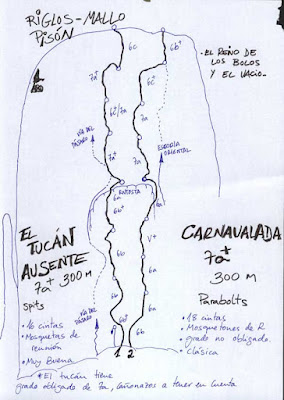 RIGLOS-MALLO
PISÓN
- EL REÑO DE
LOS BOLOS
Y EL VACIO.
6c
6b+
7a+
7a
6c/7a
6c
7a+
7a
VÍA DEL
PÁJARO
ESPORIA
ORIENTAL
REPISITA
6a
8a
6b+
V+
6b
6a
6c
6a
6a
6b
VÍA DEL
PÁJARO
1 2
EL
TUCÁN
AUSENTE
7a+ 300 M
Spits
• 16 cintas
• Mosquetas de
reunión
• Muy Buena
CARNAVALADA
7a+
300 M
Parabolts
• 18 cintas
• Mosquetones de R
• grado no obligado.
• clásica
* El tucán tiene
grado obligado de 7a, cañonazos a tener en cuenta